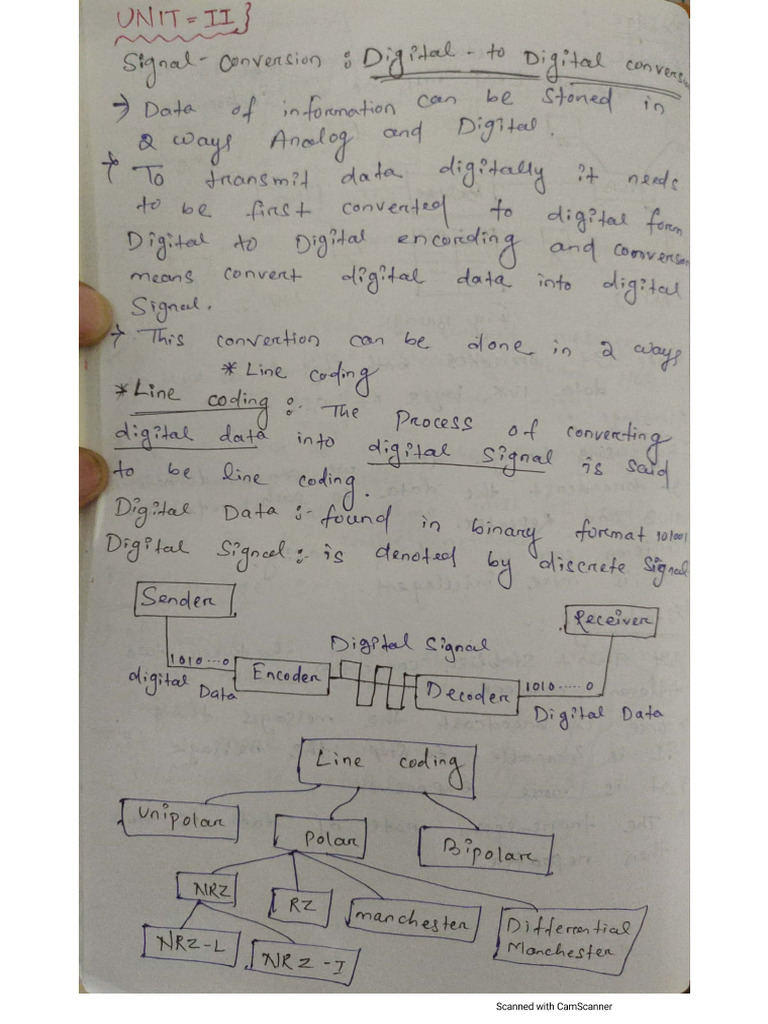 UNIT = II}
Signal-Conversion : Digital - to Digital convers
→ Data of information can be stoned in
2 ways Analog and Digital.
→ To transmit data digitally it needs
to be first converted to digital form
Digital to Digital encording and conversion
means convert digital data into digital
Signal.
→ This convertion can be done in 2 ways
* Line coding
* Line coding :- The Process of converting
digital data into digital signal is said
to be line coding.
Digital Data :- found in binary format 101001
Digital Signal :- is denoted by discrete Signal
Sender
Receiver
Digital Signal
1010...0
Encoder
digital Data
Decoder
1010.....0
Digital Data
Line coding
Unipolar
Polar
Bipolar
NRZ
RZ
manchester
Differential
Manchester
NRZ-L
NRZ-I
Scanned with CamScanner